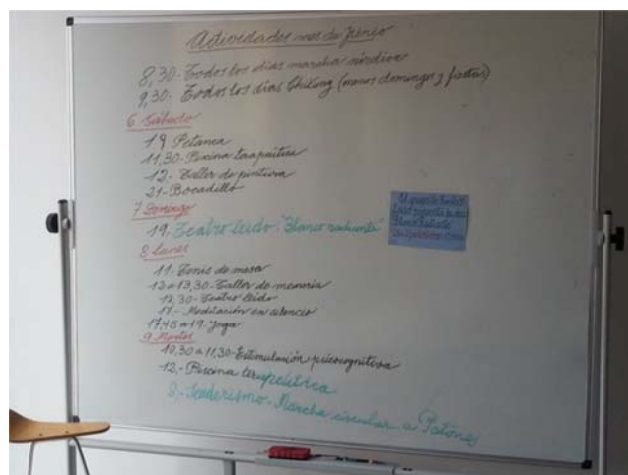 Actividades mes de Junio
8,30- Todos los días marcha nórdica
9,30- Todos los días Chikung (menos domingos y fiestas)
6 Sábado
Petanca
11,30- Piscina terapéitica
12- Taller de pintura
21- Bocadillo
7 Domingo
19,- Teatro leído "Blanco radiante"
8 Lunes
11- Tenis de mesa
12 a 13,30- Taller de memoria
Teatro leído
17- Meditación en silencio
17,45 a 19- Yoga
9 Martes
10,30 a 11,30- Estimulación psicocognitiva
12,- Piscina terapéitica
8,- Senderismo- Marcha circular a Patones